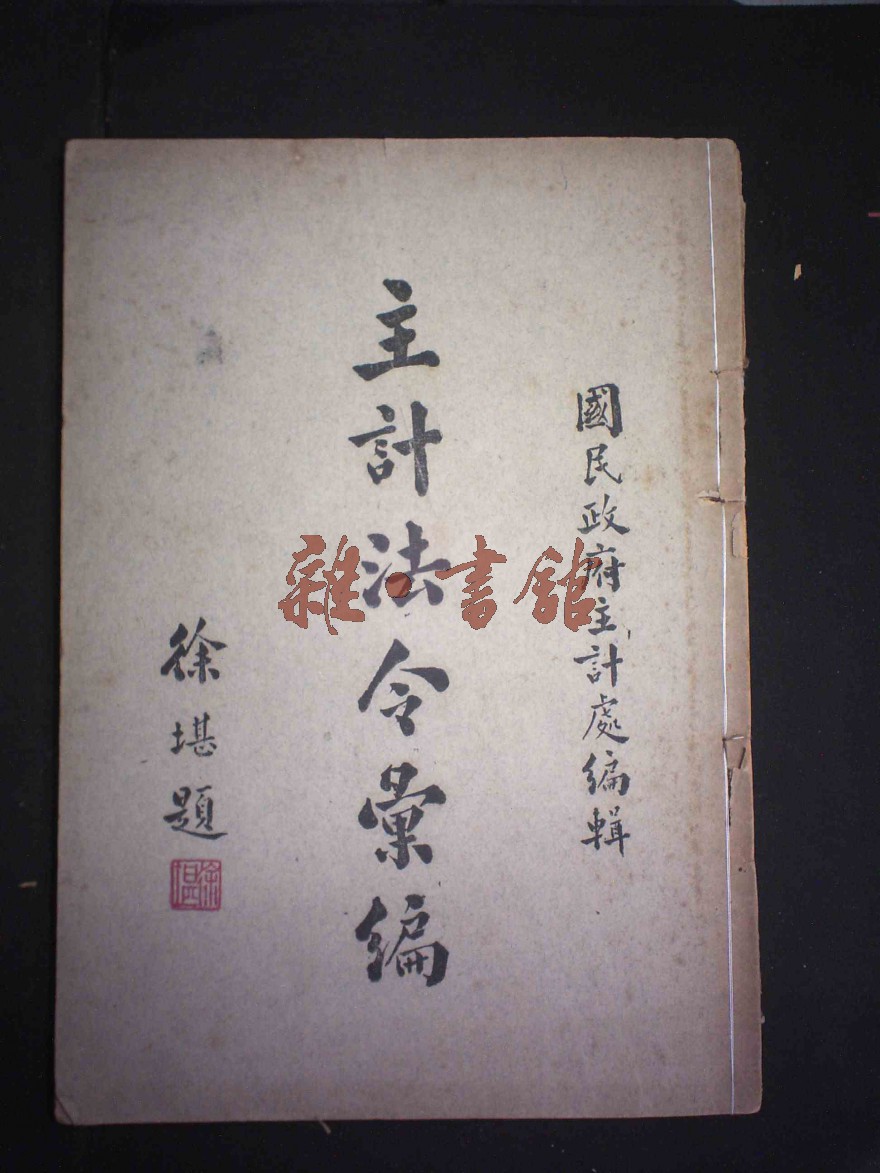 國民政府主計處編輯
主計法令彙編
徐堪題
徐堪
雜·書館